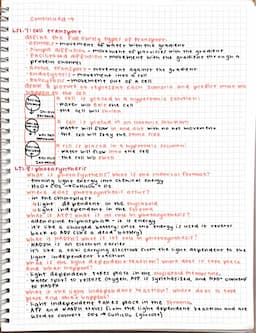 continued→
LS1-7: cell transport
define the following types of transport:
osmosis - movement of water with the gradient
simple diffusion - movement of particles with the gradient
facilitated diffusion - movement with the gradient through a
protein channel
active transport - movement against the gradient
endocytosis - movement into a cell
exocytosis - movement out of a cell
draw a picture to represent each scenario and predict what will
happen to the cell
A cell is placed in a hypertonic solution:
water will exit the cell
the cell will shrink
A cell is placed in an isotonic solution:
water will flow in and out with no net movement
the cell will stay the same size
A cell is placed in a hypotonic solution:
water will flow into the cell
the cell will swell
LS1-8: photosynthesis
What is photosynthesis? What is the chemical formula?
turning light energy into chemical energy
Where does photosynthesis occur?
in the chloroplasts
light dependent in the thylakoid
light independent in the stroma
What is ATP? What is its role in photosynthesis?
adenosine triphosphate - it is energy
it's like a charged battery; once the energy is used it resets
back to ADP (like a dead battery)
What is NADPH? What is its role in photosynthesis?
NADPH is an electron carrier
it's like a taxi carrying electrons from the light dependent to the
light independent reaction
What is the light dependent reaction? Where does it take place
and what happens?
light dependent takes place in the thylakoid membrane.
water split to release oxygen, ATP is synthesized, and NADP+ converted
to NADPH
What is the light independent reaction? Where does it take
place and what happens?
light independent takes place in the stroma.
ATP and NADPH used from the light dependent reaction and are
used to convert CO₂ → C₆H₁₂O₆ (glucose)